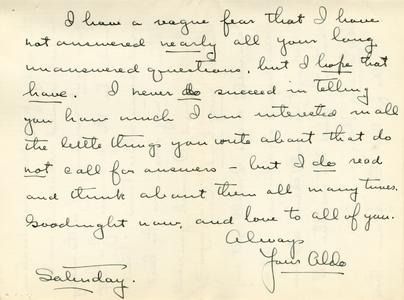 I have a vague fear that I have
not answered nearly all your long
unanswered questions, but I hope that
have. I never do succeed in telling
you how much I am interested in all
the little things you write about that do
not call for answers – but I do read
and think about them all many times.
Goodnight now, and love to all of you.
Always
Your Aldo
Saturday.